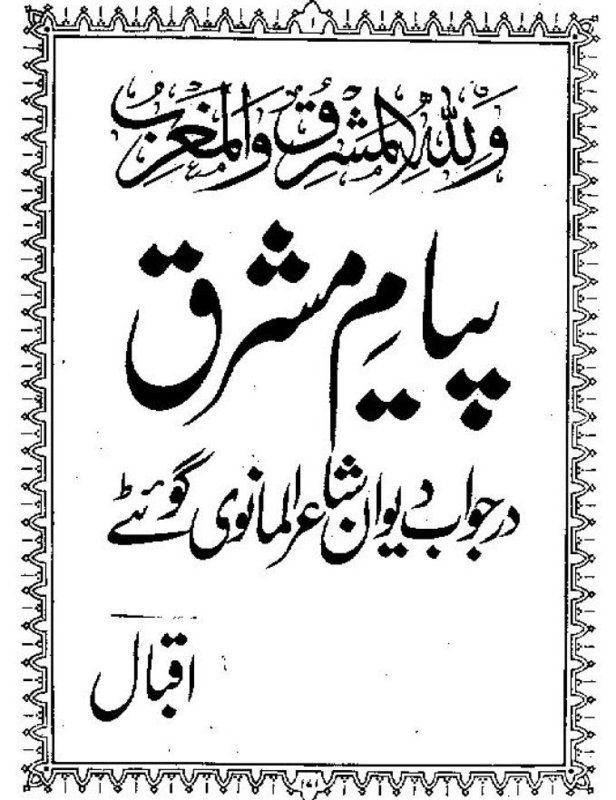 وَلِلّٰهِ الْمَشْرِقُ وَالْمَغْرِبُ
پیامِ مشرق
در جواب دیوان شاعر المانوی گوئٹے
اقبال